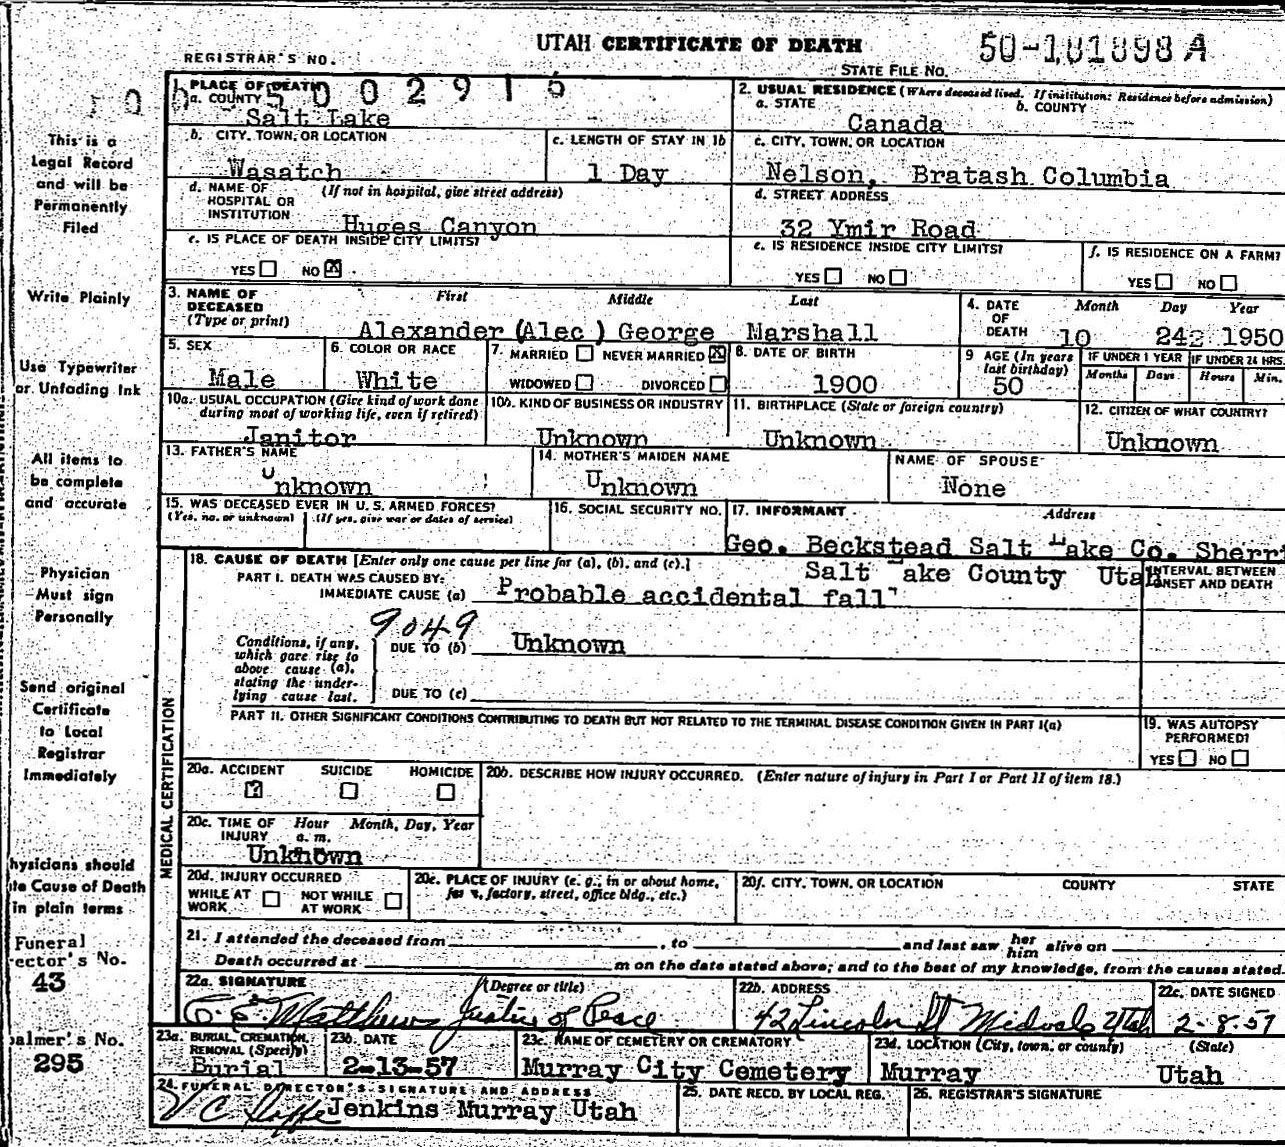 UTAH CERTIFICATE OF DEATH
50-181898 A
REGISTRAR'S NO.
STATE FILE NO.
5002916
This is a
Legal Record
and will be
Permanently
Filed
Write Plainly
Use Typewriter
or Unfading Ink
All items to
be complete
and accurate
Physician
Must sign
Personally
Send original
Certificate
to Local
Registrar
Immediately
hysicians should
te Cause of Death
in plain terms
Funeral
ector's No.
43
almer's No.
295
1. PLACE OF DEATH
a. COUNTY
Salt Lake
2. USUAL RESIDENCE (Where deceased lived. If institution: Residence before admission)
a. STATE b. COUNTY
Canada
b. CITY, TOWN, OR LOCATION
Wasatch
c. LENGTH OF STAY IN 1b
1 Day
c. CITY, TOWN, OR LOCATION
Nelson, Bratash Columbia
d. NAME OF (If not in hospital, give street address)
HOSPITAL OR
INSTITUTION
Huges Canyon
d. STREET ADDRESS
32 Ymir Road
e. IS PLACE OF DEATH INSIDE CITY LIMITS?
YES NO X
e. IS RESIDENCE INSIDE CITY LIMITS?
YES NO
f. IS RESIDENCE ON A FARM?
YES NO
3. NAME OF First Middle Last
DECEASED
(Type or print)
Alexander (Alec) George Marshall
4. DATE Month Day Year
OF
DEATH 10 24 1950
5. SEX
Male
6. COLOR OR RACE
White
7. MARRIED NEVER MARRIED X
WIDOWED DIVORCED
8. DATE OF BIRTH
1900
9 AGE (In years
last birthday)
50
IF UNDER 1 YEAR IF UNDER 24 HRS.
Months Days Hours Min.
10a. USUAL OCCUPATION (Give kind of work done
during most of working life, even if retired)
Janitor
10b. KIND OF BUSINESS OR INDUSTRY
Unknown
11. BIRTHPLACE (State or foreign country)
Unknown
12. CITIZEN OF WHAT COUNTRY?
Unknown
13. FATHER'S NAME
Unknown
14. MOTHER'S MAIDEN NAME
Unknown
NAME OF SPOUSE
None
15. WAS DECEASED EVER IN U. S. ARMED FORCES?
(Yes, no, or unknown) (If yes, give war or dates of service)
16. SOCIAL SECURITY NO.
17. INFORMANT Address
Geo. Beckstead Salt Lake Co. Sherri
Salt Lake County Utah
MEDICAL CERTIFICATION
18. CAUSE OF DEATH [Enter only one cause per line for (a), (b), and (c).]
INTERVAL BETWEEN
ONSET AND DEATH
PART I. DEATH WAS CAUSED BY:
IMMEDIATE CAUSE (a) Probable accidental fall
9049
Conditions, if any,
which gave rise to
above cause (a),
stating the under-
lying cause last.
DUE TO (b) Unknown
DUE TO (c)
PART II. OTHER SIGNIFICANT CONDITIONS CONTRIBUTING TO DEATH BUT NOT RELATED TO THE TERMINAL DISEASE CONDITION GIVEN IN PART I(a)
19. WAS AUTOPSY
PERFORMED?
YES NO
20a. ACCIDENT SUICIDE HOMICIDE
?
20b. DESCRIBE HOW INJURY OCCURRED. (Enter nature of injury in Part I or Part II of item 18.)
20c. TIME OF Hour Month, Day, Year
INJURY a. m.
Unknown
20d. INJURY OCCURRED
WHILE AT NOT WHILE
WORK AT WORK
20e. PLACE OF INJURY (e. g., in or about home,
factory, street, office bldg., etc.)
20f. CITY, TOWN, OR LOCATION COUNTY STATE
21. I attended the deceased from , to and last saw her him alive on
Death occurred at m on the date stated above; and to the best of my knowledge, from the causes stated.
22a. SIGNATURE (Degree or title)
Matthews Justice of Peace
22b. ADDRESS
42 Lincoln St Midvale Utah
22c. DATE SIGNED
2-8-57
23a. BURIAL, CREMATION,
REMOVAL (Specify)
Burial
23b. DATE
2-13-57
23c. NAME OF CEMETERY OR CREMATORY
Murray City Cemetery
23d. LOCATION (City, town, or county) (State)
Murray Utah
24. FUNERAL DIRECTOR'S SIGNATURE AND ADDRESS
Jenkins Murray Utah
25. DATE RECD. BY LOCAL REG.
26. REGISTRAR'S SIGNATURE